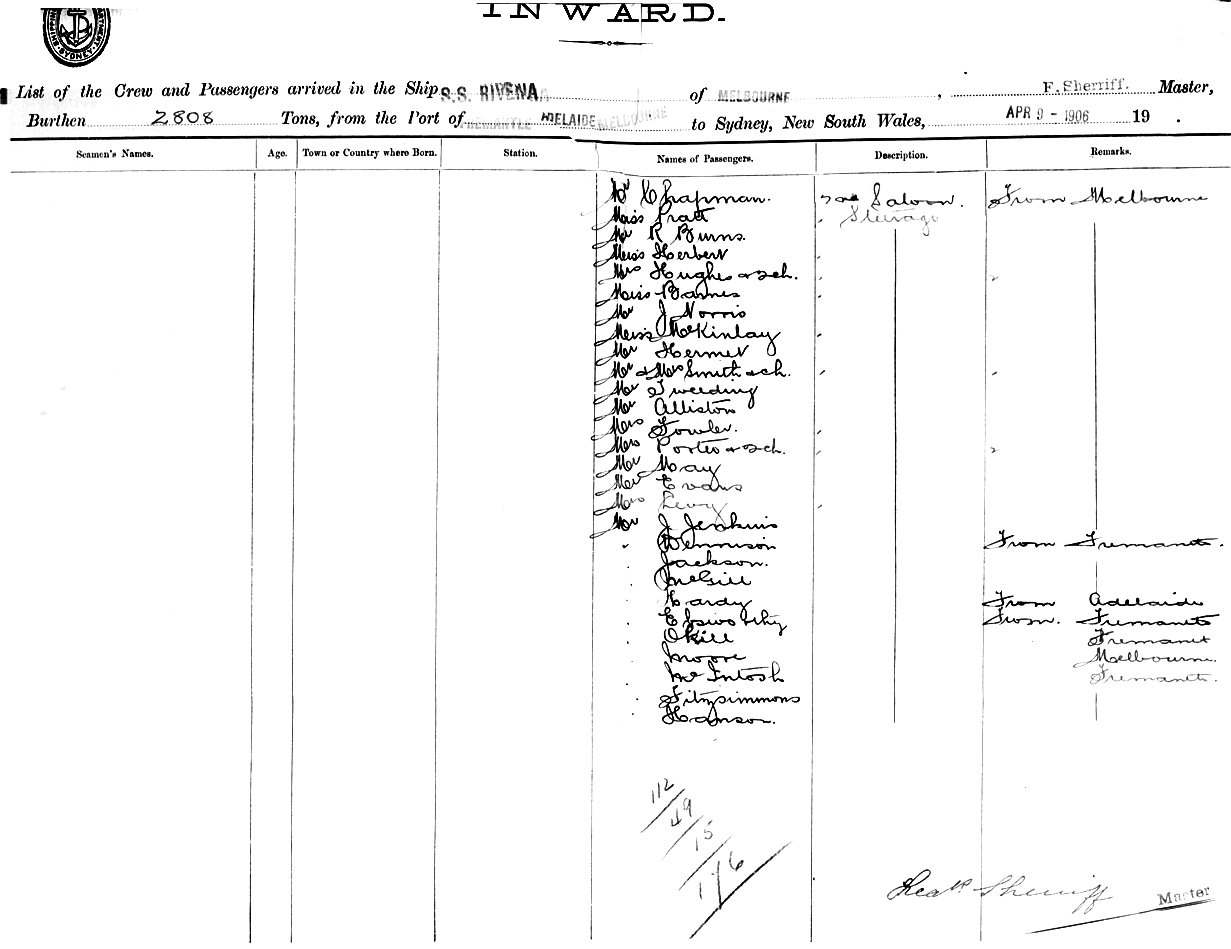 INWARD.
SYDNEY
List of the Crew and Passengers arrived in the Ship S.S. RIVENA of MELBOURNE, F. Sherriff. Master,
Burthen 2808 Tons, from the Port of FREMANTLE ADELAIDE MELBOURNE to Sydney, New South Wales, APR 9 - 1906 19 .
Seamen's Names. Age. Town or Country where Born. Station. Names of Passengers. Description. Remarks.
Mr Chapman. Saloon. From Melbourne
Miss Pratt Steerage
Mr R Burns.
Miss Herbert
Mrs Hughes & 2ch.
Miss Barnes
Mr J Norris
Miss McKinlay
Mr Hermet
Mr & Mrs Smith & ch.
Mr Tweeding
Mr Alliston
Mrs Fowler.
Mrs Porter & 2ch.
Mr May
Mr Evans
Mrs Levy
Mr J Jenkins
Dennison From Fremantle.
Jackson.
McGill
Hardy From Adelaide
Elsworthy From. Fremantle
Okill Fremantle
Moore Melbourne.
McIntosh Fremantle.
Fitzsimmons
Hanson.
112
49
15
176
Sherriff Master